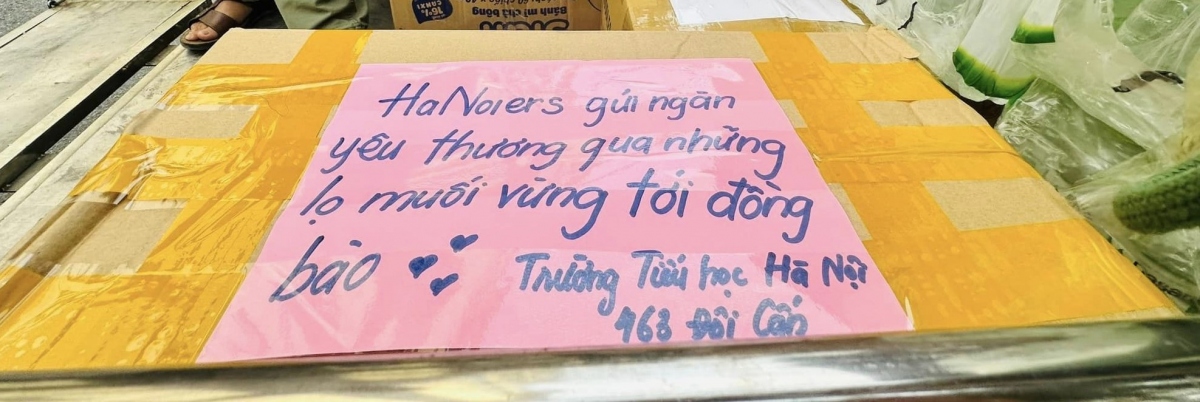 16% CANXI
Bánh mì chà bông
HaNoiers gửi ngàn
yêu thương qua những
lọ muối vừng tới đồng
bào
Trường Tiểu học Hà Nội
463 Đội Cấn